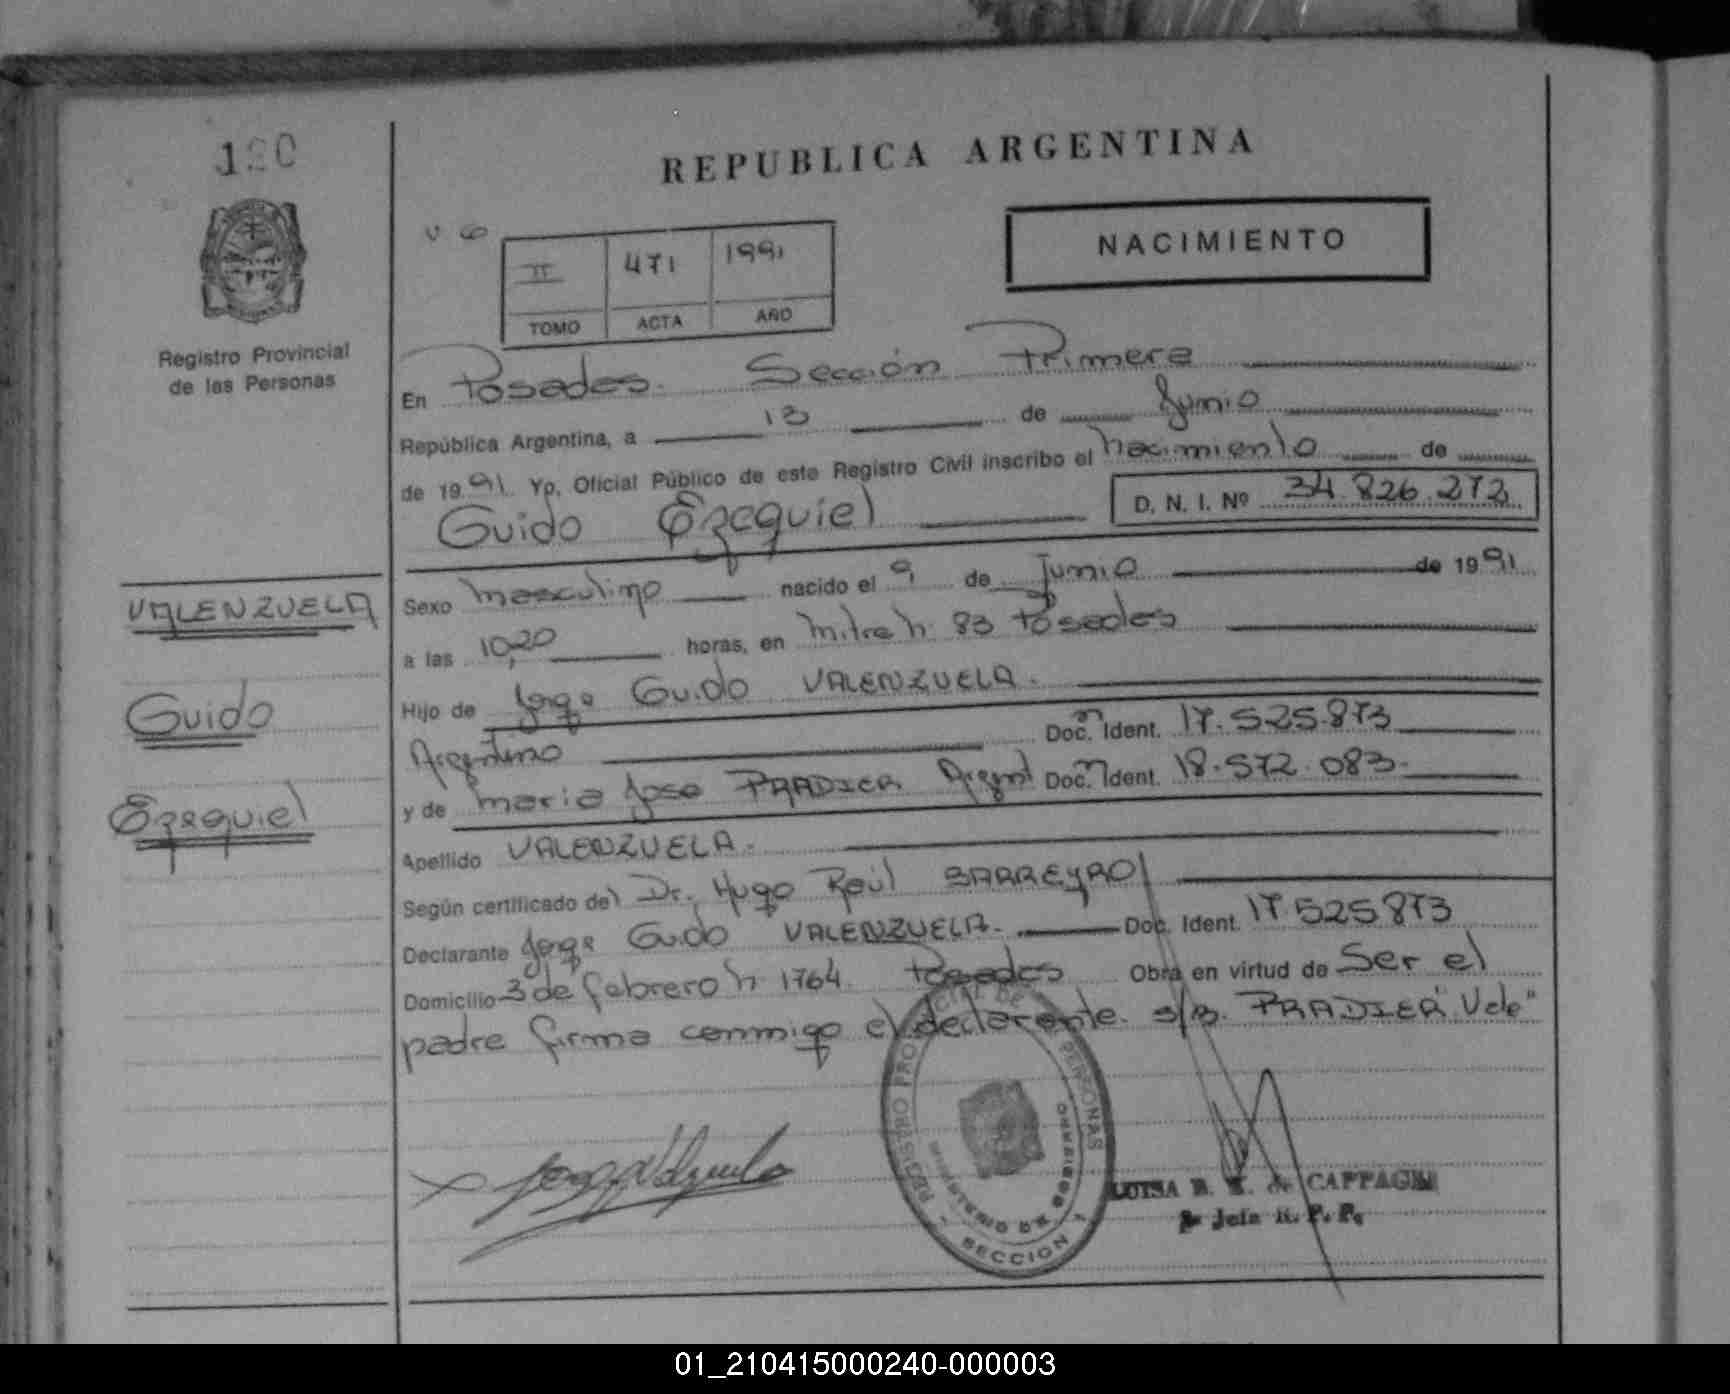 120
REPUBLICA ARGENTINA
NACIMIENTO
II 471 1991
TOMO ACTA AÑO
Registro Provincial
de las Personas
En Posadas. Sección Primera
República Argentina, a 13 de Junio
de 1991. Yo, Oficial Público de este Registro Civil inscribo el nacimiento de
Guido Ezequiel D. N. I. Nº 34.826.272
VALENZUELA
Guido
Ezequiel
Sexo masculino nacido el 9 de Junio de 1991
a las 10,20 horas, en Mitre n. 83 Posadas
Hijo de Jorge Guido VALENZUELA.
Argentino Doc. Ident. 17.525.873
y de Maria Jose PRADIER Argent Doc. Ident. 18.572.083.
Apellido VALENZUELA.
Según certificado del Dr. Hugo Raúl BARREYRO
Declarante Jorge Guido VALENZUELA. Doc. Ident. 17.525873
Domicilio 3 de febrero n 1764. Posadas Obra en virtud de Ser el
padre firma conmigo el declarante. s/b. PRADIER "Vale"
REGISTRO PROVINCIAL DE LAS PERSONAS
MINISTERIO DE GOBIERNO
SECCION 1
LUISA B. K. de CAFFAGNI
Jefa R. P. P.
01_210415000240-000003